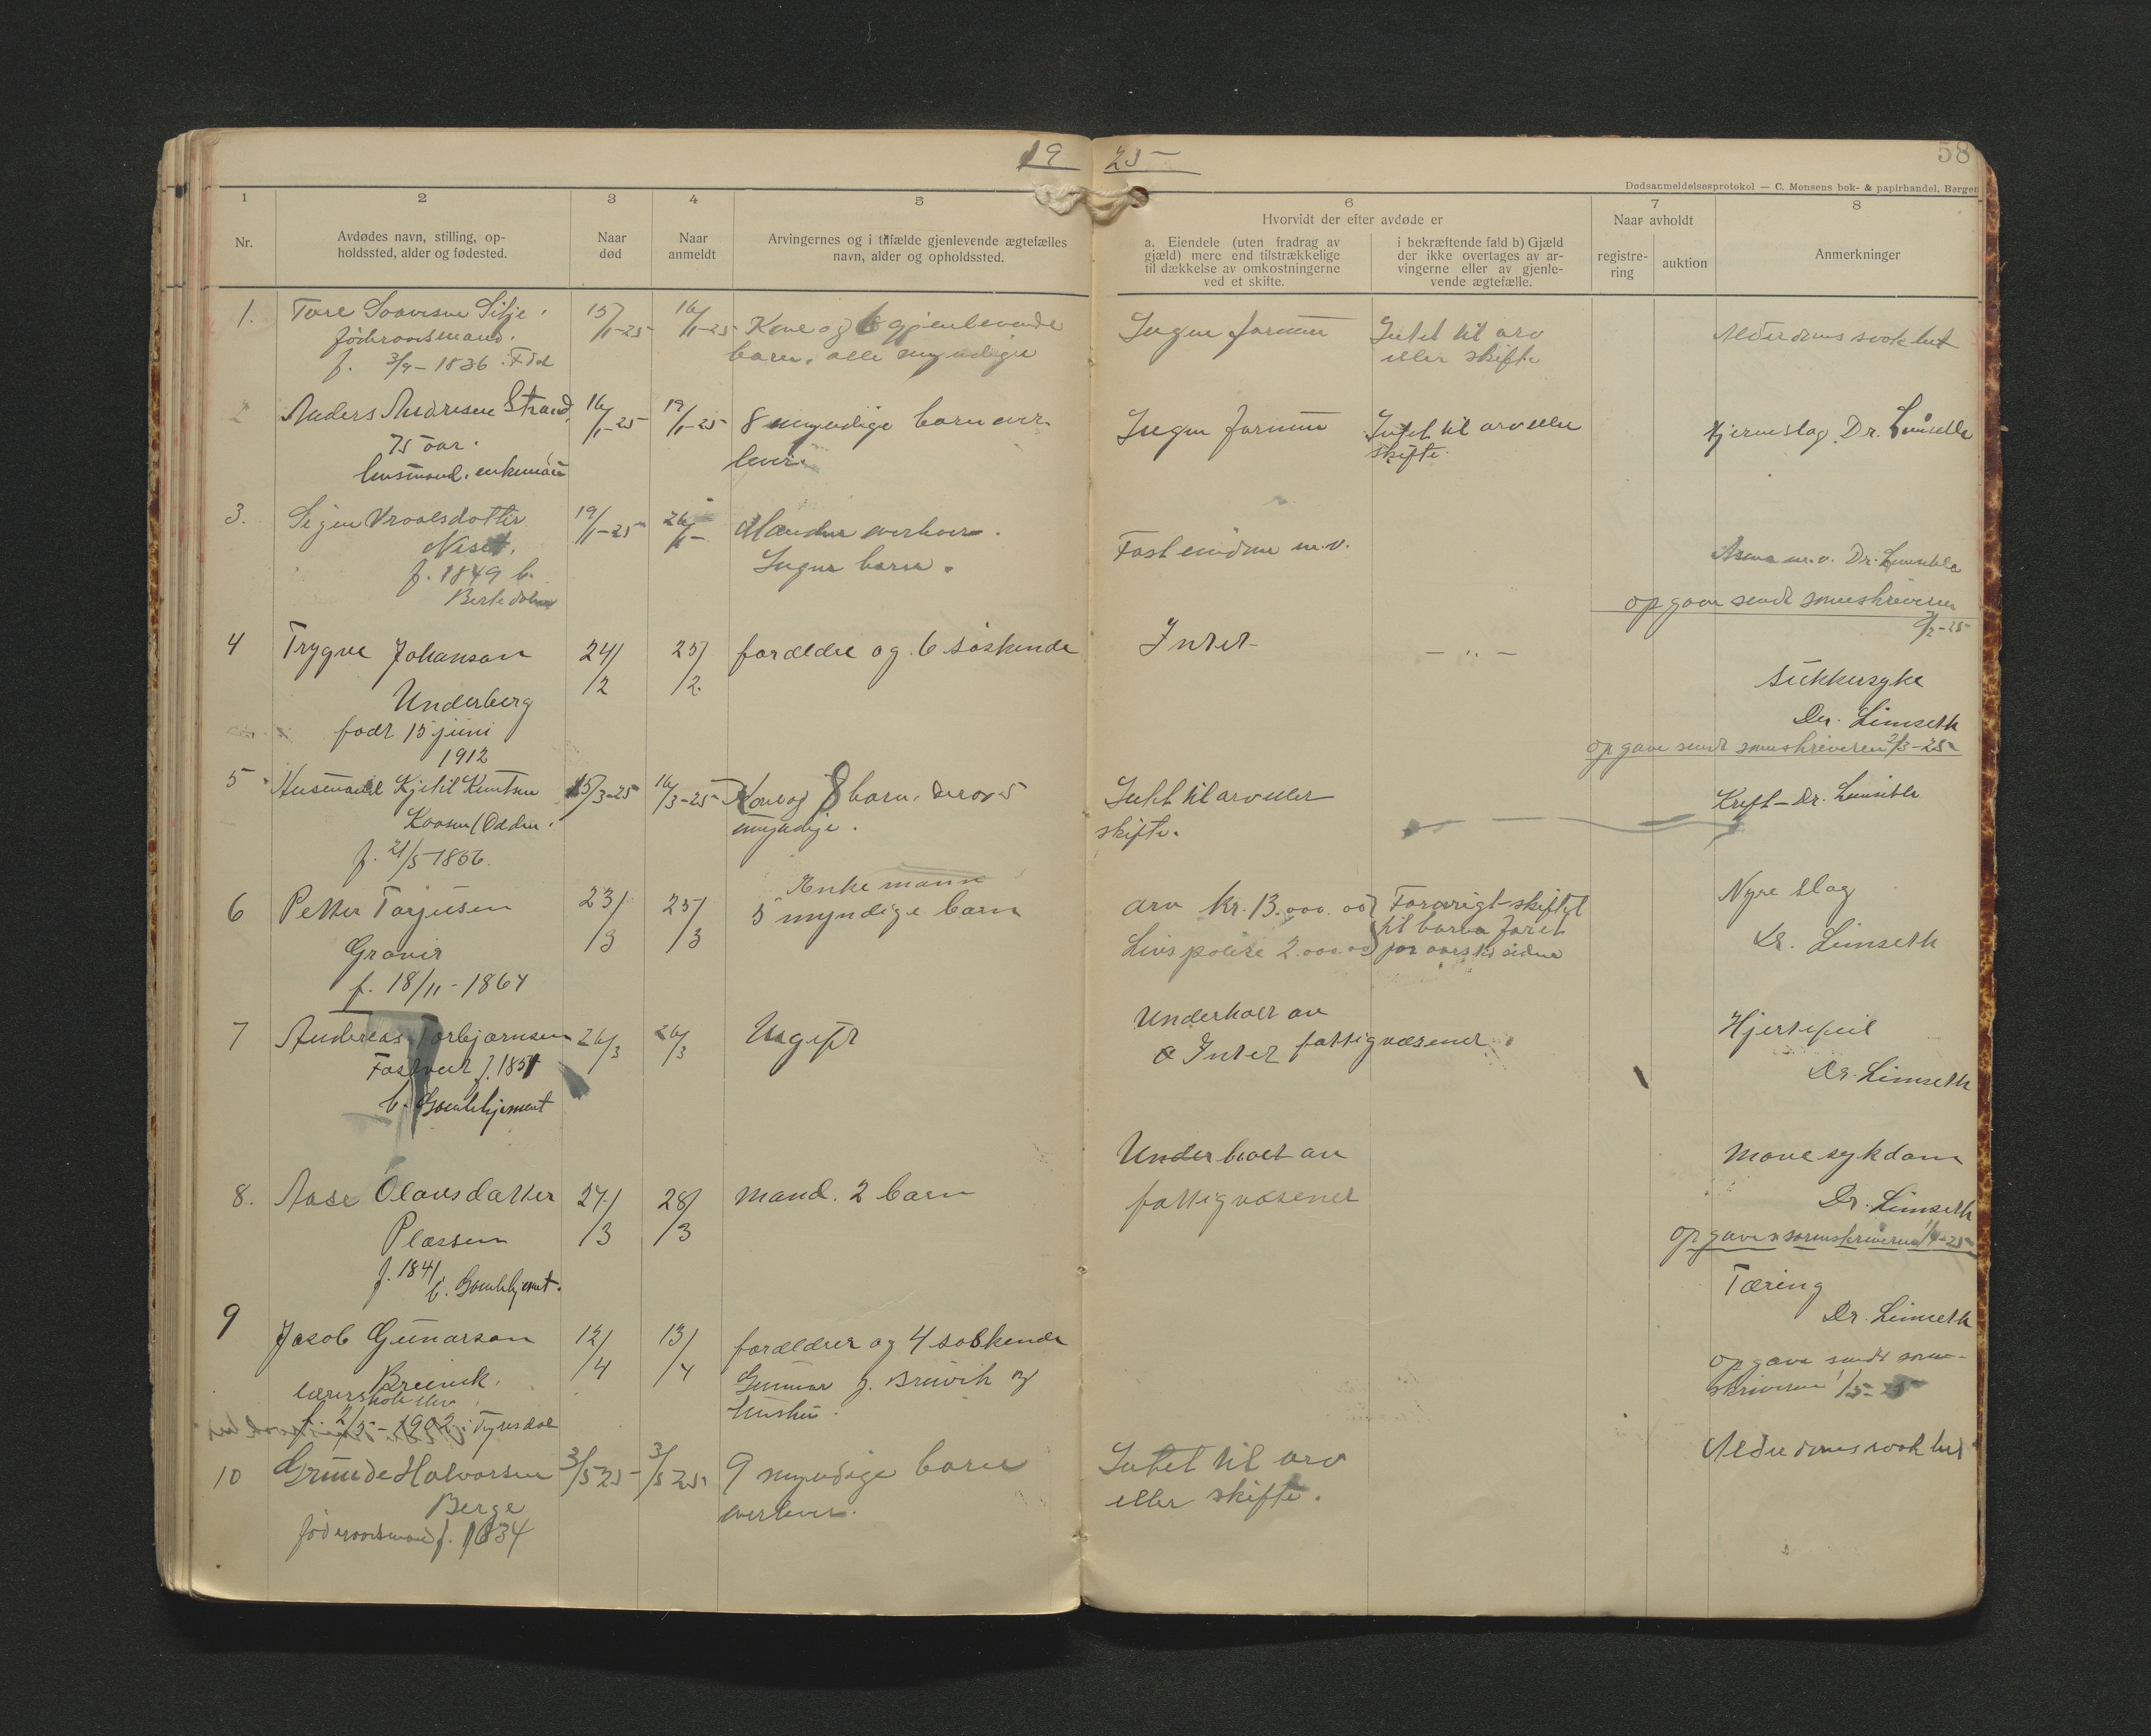 19 25 –
58
Dødsanmeldelsesprotokol — C. Monsens bok- & papirhandel, Bergen
1 2 3 4 5 6 7 8
Nr.
Avdødes navn, stilling, op-
holdssted, alder og fødested.
Naar
død
Naar
anmeldt
Arvingernes og i tilfælde gjenlevende ægtefælles
navn, alder og opholdssted.
Hvorvidt der efter avdøde er
a. Eiendele (uten fradrag av
gjæld) mere end tilstrækkelige
til dækkelse av omkostningerne
ved et skifte.
i bekræftende fald b) Gjæld
der ikke overtages av ar-
vingerne eller av gjenle-
vende ægtefælle.
Naar avholdt
registre-
ring
auktion
Anmerkninger
1. Tore Soavesen Silje 15/1-25 16/1-25 Kone og 6 gjenlevende Ingen formue Intet til arv Alderdomssvakhet
føderaadsmand. barn, alle myndige eller skifte
f. 3/9-1836
2 Anders Andresen Strand, 16/1-25 19/1-25 8 myndige barn over- Ingen formue Intet til arv eller Hjerneslag. Dr. Limseth
75 aar. lever. skifte.
husmand, enkemand
3. Sigen Vraalsdotter 19/1-25 26/1- Manden overlever. Fast eiendom m.v. Asma m.v. Dr. Limseth
Neset. Ingen barn.
f. 1849 b.
opgave sendt sorenskriveren
2/2-25
4 Trygve Johanson 24/2 25/2 forældre og 6 søskende Intet – " –
Underberg sukkersyke
født 15 juni Dr. Limseth
1912 opgave sendt sorenskriveren 2/3-25
5 Husmand Kjetil Knutsen 15/3-25 16/3-25 Kone og 8 barn, derav 5 Intet til arv eller Kreft – Dr. Limseth
Kaasen (Odden. myndige. skifte.
f. 21/5 1856.
6 Petter Torjusen 23/3 25/3 Enkemann arv kr. 13.000.00 Forøvrigt skiftet Nyre slag
5 myndige barn til barna foret
Gravir Livspolise 2.000.00 for aarsti siden Dr. Limseth
f. 18/11-1864
7 Andreas Torbjørnsen 26/3 26/3 Ugift Underholt av Hjertefeil
Fastveit f. 1851 Intet fattigvæsenet Dr. Limseth
b. Gamlehjemmet
8. Aase Olavsdatter 27/3 28/3 mand. 2 barn Underholt av Mavesykdom
Plassen fattigvæsenet Dr. Limseth
f. 1841 b. Gamlehjemmet. opgave s sorenskriveren 1/4-25
9 Jacob Gunarson 12/4 13/4 forældrer og 4 søskende Tæring
Breivik. Gunnar J. Breivik og Dr. Limseth
lærerskole elev hustru. opgave sendt soren-
f. 2/5-1902 i Tyrsdal skriveren 1/5-25
10 Grunde Halvorsen 3/5 25 3/5 25 9 myndige barn Intet til arv Alderdomssvakhet
Berge overlever. eller skifte.
føderaadsmand f. 1834